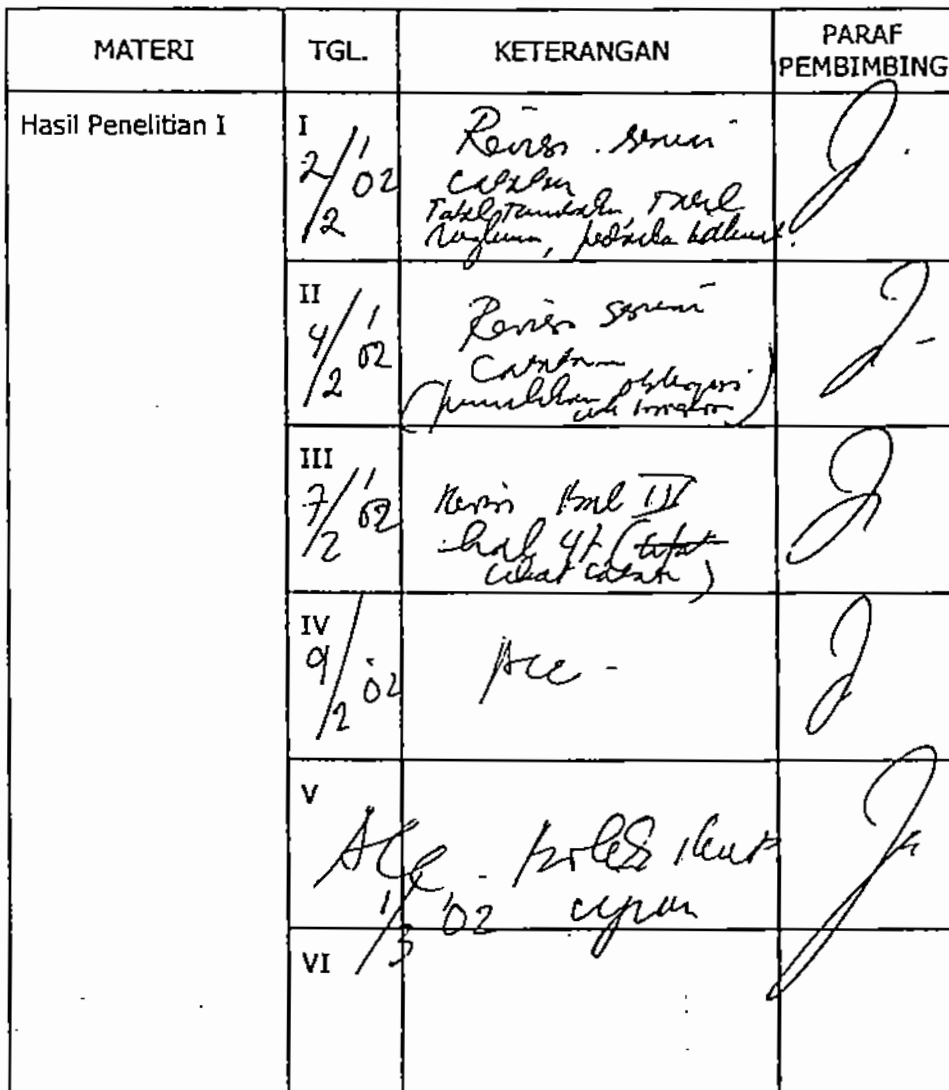 MATERI
TGL.
KETERANGAN
PARAF
PEMBIMBING
Hasil Penelitian I
I
2/2 '02
Revisi sesuai
catatan
Tabel
II
4/2 '02
Revisi sesuai
catatan
III
7/2 '02
Revisi Bab IV
hal 47 (
lihat catatan)
IV
9/2 '02
Acc -
V
Acc - boleh ikut
1/3 '02 ujian
VI